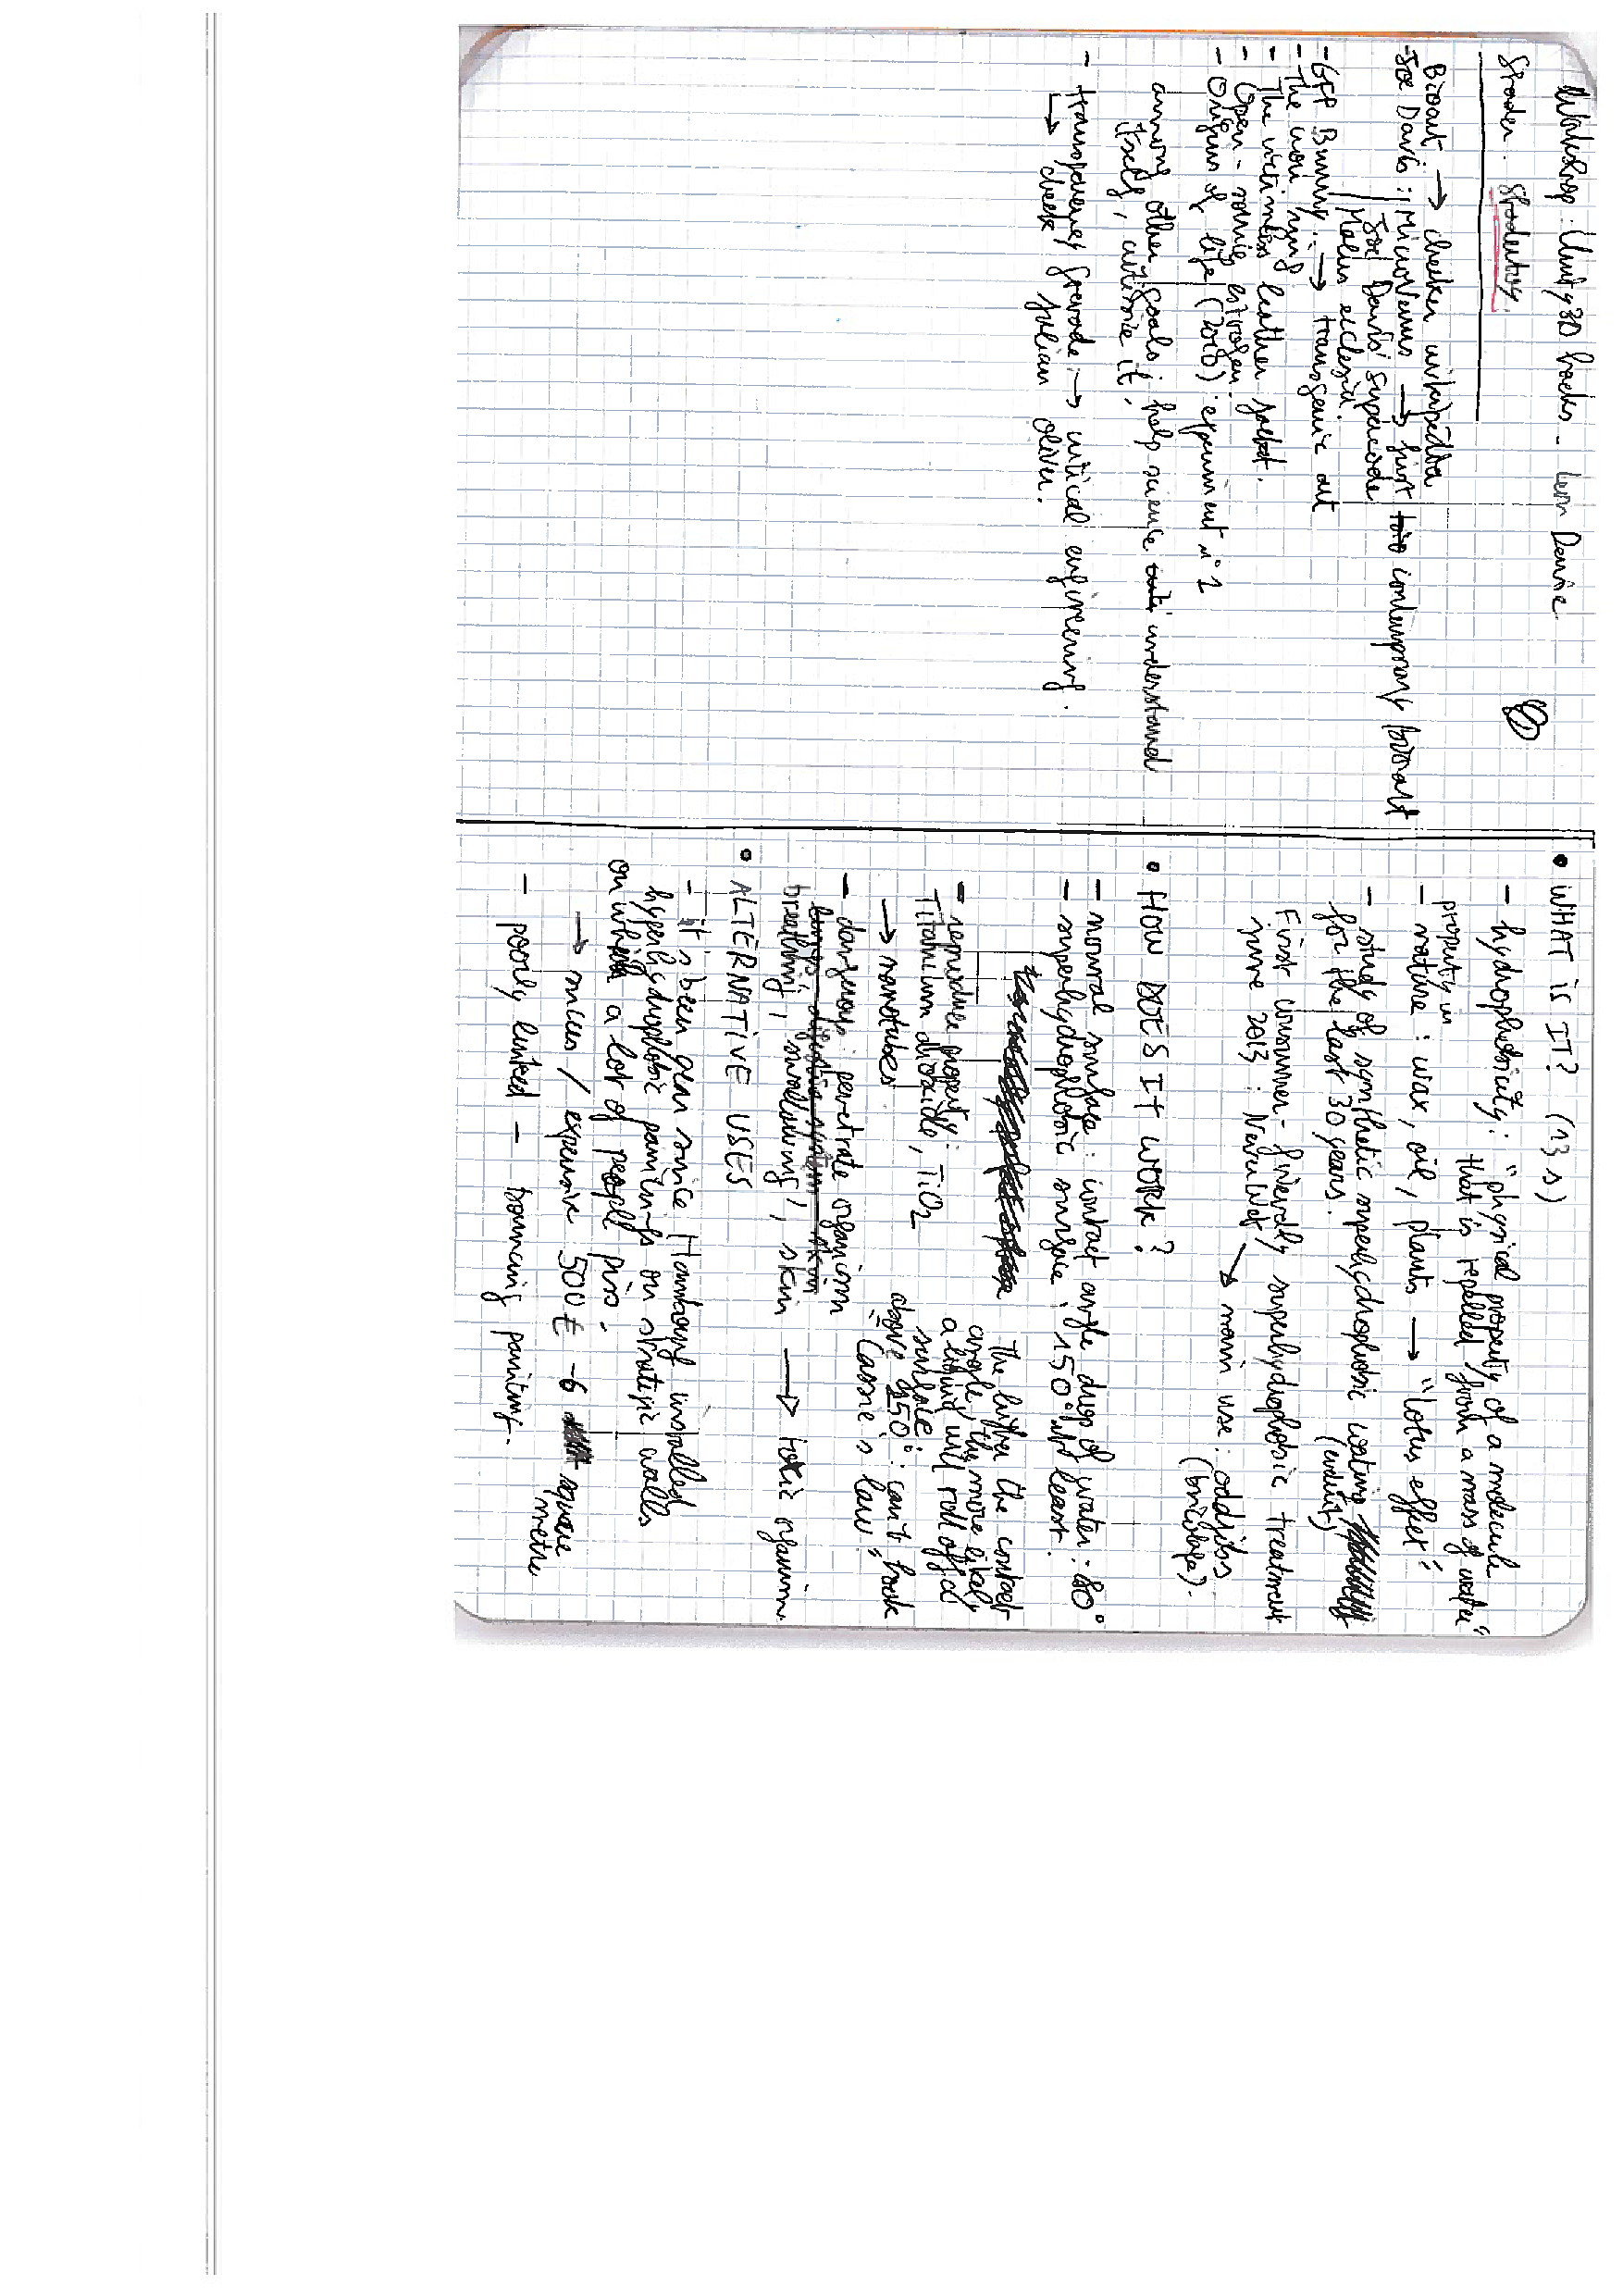 Workshop: Unity3D basics - Leon Denise
Shader: Shadertoy.
Bioart: → checker wikipedia
- Joe Davis: Microvenus → first contemporary bioart
Joe Davis' supercode
Malus ecclesia.
- GFP Bunny: → transgenic art
- The
- The victimless leather jacket.
- Open-source estrogen.
- Origins of life (2010): experiment n°2
among other goals: help science understand
itself, criticise it.
- transparency grenade: → critical engineering.
→ check Julian Oliver.
• WHAT is IT? (13 s)
- hydrophobicity: "physical property of a molecule
that is repelled from a mass of water"
property in
- nature: wax, oil, plants → "lotus effect".
- study of synthetic superhydrophobic coating
for the last 30 years. (enduit)
First consumer-friendly superhydrophobic treatment
june 2013: NeverWet
→ main use: oddities
(bricolage).
• HOW DOES IT WORK?
- normal surface: contact angle drop of water: 80°
- superhydrophobic surface: 150° at least.
the higher the contact
angle, the more likely
a liquid will roll off a
surface.
above 150°: can't hook
"Cassie's law"
- reproduce property:
Titanium dioxide, TiO2
→ nanotubes
- dangerous: penetrate organism
lungs, digestive system, skin
breathing, swallowing, skin → toxic organism
• ALTERNATIVE USES
- it's been seen since Hambourg installed
hyperhydrophobic paintings on strategic walls
on which a lot of people piss.
→ mices / expensive 500 € - 6 square
metre
- poorly linked - bouncing painting.